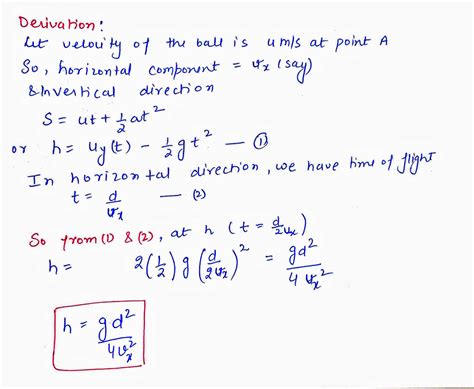 Derivation:
Let velocity of the ball is u m/s at point A
So, horizontal component = vₓ (say)
& Invertical direction
S = ut + 1/2 at²
or h = u_y(t) - 1/2 gt² — ①
In horizontal direction, we have time of flight
t = d/vₓ — (2)
So from (1) & (2), at h (t = d/2uₓ)
h = 2(1/2) g (d/2vₓ)² = gd²/4vₓ²
h = gd²/4vₓ²